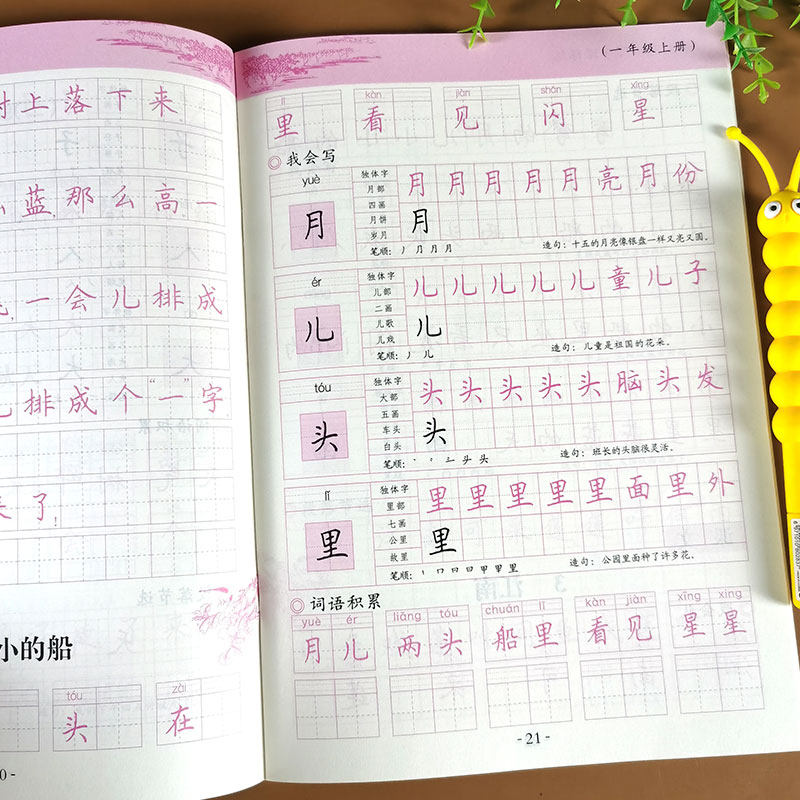 时上落下来
蓝,那么高,一
一会儿排成
排成个“一”字
来了。
小的船
tóu zài
头 在
0 -
(一年级上册)
lǐ kàn jiàn shǎn xīng
里 看 见 闪 星
我会写
yuè
月
独体字
月部
四画
月饼
岁月
月月月月月亮月份
月
笔顺: 丿 月 月 月
造句:十五的月亮像银盘一样又亮又圆。
ér
儿
独体字
儿部
二画
儿歌
儿戏
儿儿儿儿儿童儿子
儿
笔顺: 丿 儿
造句:儿童是祖国的花朵。
tóu
头
独体字
大部
五画
车头
白头
头头头头头脑头发
头
笔顺:
造句:班长的头脑很灵活。
lǐ
里
独体字
里部
七画
公里
故里
里里里里里面里外
里
笔顺: 丨 口 曰 曰 甲 甲 里
造句:公园里面种了许多花。
词语积累
yuè ér liǎng tóu chuán lǐ kàn jiàn xīng xing
月儿 两头 船里 看见 星星
- 21 -